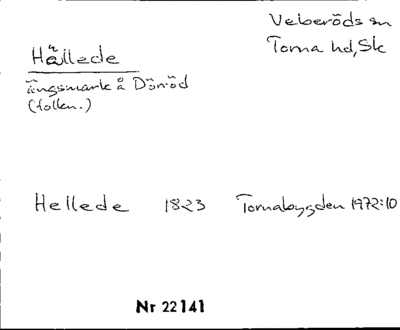 Veberöds sn
Torna hd, Sk
Hällede
ängsmark å Dörröd
(folken.)
Hellede 1823 Tornabygden 1972:10
Nr 22141